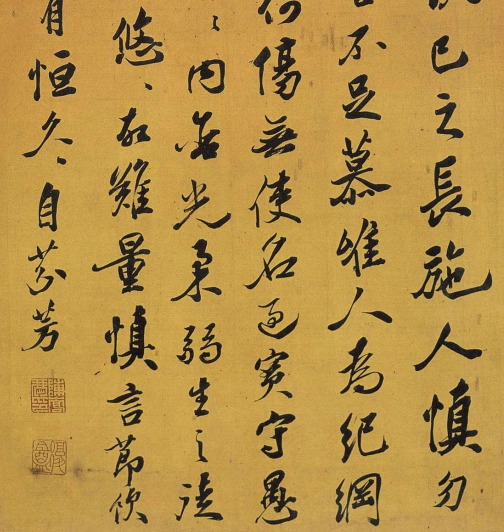 己之長施人慎勿
不足慕唯人為紀綱
何傷無使名過實守愚
〻內含光柔弱生之徒
悠〻故難量慎言節飲
有恒久〻自芬芳